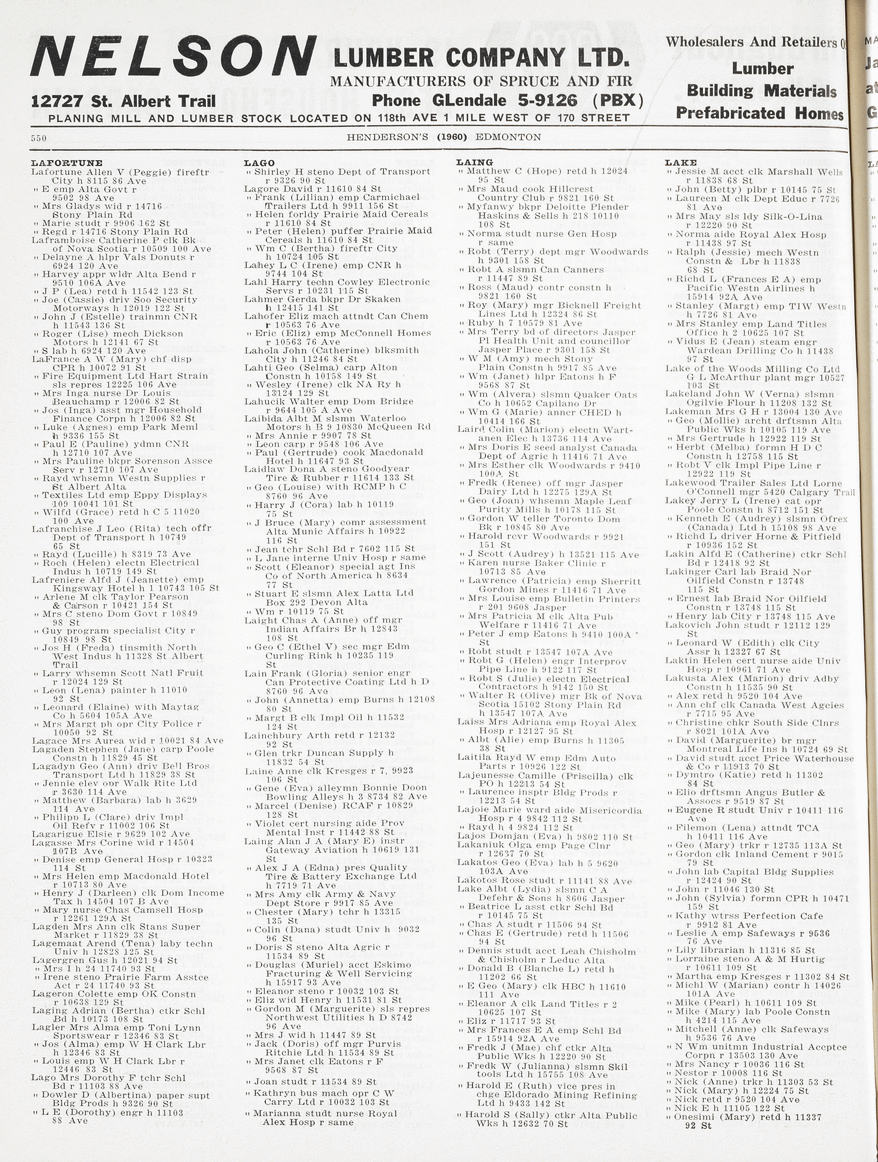 NELSON LUMBER COMPANY LTD.
MANUFACTURERS OF SPRUCE AND FIR
12727 St. Albert Trail Phone GLendale 5-9126 (PBX)
PLANING MILL AND LUMBER STOCK LOCATED ON 118th AVE 1 MILE WEST OF 170 STREET
Wholesalers And Retailers
Lumber
Building Materials
Prefabricated Homes
550 HENDERSON'S (1960) EDMONTON
LAFORTUNE
Lafortune Allen V (Peggie) fireftr
City h 8115 86 Ave
" E emp Alta Govt r
9502 98 Ave
" Mrs Gladys wid r 14716
Stony Plain Rd
" Marie studt r 9906 162 St
" Regd r 14716 Stony Plain Rd
Laframboise Catherine P clk Bk
of Nova Scotia r 10509 100 Ave
" Delayne A hlpr Vals Donuts r
6924 120 Ave
" Harvey appr wldr Alta Bend r
9510 106A Ave
" J P (Lea) retd h 11542 123 St
" Joe (Cassie) driv Soo Security
Motorways h 12019 122 St
" John J (Estelle) trainmn CNR
h 11543 136 St
" Roger (Lise) mech Dickson
Motors h 12141 67 St
" S lab h 6924 120 Ave
LaFrance A W (Mary) chf disp
CPR h 10072 91 St
" Fire Equipment Ltd Hart Strain
sls repres 12225 106 Ave
" Mrs Inga nurse Dr Louis
Beauchamp r 12006 82 St
" Jos (Inga) asst mgr Household
Finance Corpn h 12006 82 St
" Luke (Agnes) emp Park Meml
h 9336 155 St
" Paul E (Pauline) ydmn CNR
h 12710 107 Ave
" Mrs Pauline bkpr Sorenson Assce
Serv r 12710 107 Ave
" Rayd whsemn Westn Supplies r
St Albert Alta
" Textiles Ltd emp Eppy Displays
109 10041 101 St
" Wilfd (Grace) retd h C 5 11020
100 Ave
Lafranchise J Leo (Rita) tech offr
Dept of Transport h 10749
65 St
" Rayd (Lucille) h 8319 73 Ave
" Roch (Helen) electn Electrical
Indus h 10719 149 St
Lafreniere Alfd J (Jeanette) emp
Kingsway Hotel h 1 10743 105 St
" Arlene M clk Taylor Pearson
& Carson r 10421 154 St
" Mrs C steno Dom Govt r 10849
98 St
" Guy program specialist City r
10849 98 St
" Jos H (Freda) tinsmith North
West Indus h 11328 St Albert
Trail
" Larry whsemn Scott Natl Fruit
r 12024 129 St
" Leon (Lena) painter h 11010
92 St
" Leonard (Elaine) with Maytag
Co h 5604 105A Ave
" Mrs Margt ph opr City Police r
10050 92 St
Lagace Mrs Aurea wid r 10021 84 Ave
Lagaden Stephen (Jane) carp Poole
Constn h 11829 45 St
Lagadyn Geo (Ann) driv Bell Bros
Transport Ltd h 11829 38 St
" Jennie elev opr Walk Rite Ltd
r 3630 114 Ave
" Matthew (Barbara) lab h 3629
114 Ave
" Philipp L (Clare) driv Impl
Oil Refy r 11002 106 St
Lagarigue Elsie r 9629 102 Ave
Lagasse Mrs Corine wid r 14504
107B Ave
" Denise emp General Hosp r 10323
114 St
" Mrs Helen emp Macdonald Hotel
r 10713 80 Ave
" Henry J (Darleen) clk Dom Income
Tax h 14504 107 B Ave
" Mary nurse Chas Camsell Hosp
r 12261 129A St
Lagden Mrs Ann clk Stans Super
Market r 11829 38 St
Lagemaat Arend (Tena) laby techn
Univ h 12828 125 St
Lagergren Gus h 12021 94 St
" Mrs I h 24 11740 93 St
" Irene steno Prairie Farm Asstce
Act r 24 11740 93 St
Lageron Colette emp OK Constn
r 10638 129 St
Laging Adrian (Bertha) ctkr Schl
Bd h 10173 108 St
Lagler Mrs Alma emp Toni Lynn
Sportswear r 12346 83 St
" Jos (Alma) emp W H Clark Lbr
h 12346 83 St
" Louis emp W H Clark Lbr r
12446 83 St
Lago Mrs Dorothy F tchr Schl
Bd r 11103 88 Ave
" Dowler D (Albertina) paper supt
Bldg Prods h 9326 90 St
" L E (Dorothy) engr h 11103
88 Ave
LAGO
" Shirley H steno Dept of Transport
r 9326 90 St
Lagore David r 11610 84 St
" Frank (Lillian) emp Carmichael
Trailers Ltd h 9911 156 St
" Helen forldy Prairie Maid Cereals
r 11610 84 St
" Peter (Helen) puffer Prairie Maid
Cereals h 11610 84 St
" Wm C (Bertha) fireftr City
h 10724 105 St
Lahey L C (Irene) emp CNR h
9744 104 St
Lahl Harry techn Cowley Electronic
Servs r 10231 115 St
Lahmer Gerda bkpr Dr Skaken
h 12415 141 St
Lahofer Eliz mach attndt Can Chem
r 10563 76 Ave
" Eric (Eliz) emp McConnell Homes
r 10563 76 Ave
Lahola John (Catherine) blksmith
City h 11246 84 St
Lahti Geo (Selma) carp Alton
Constn h 10158 149 St
" Wesley (Irene) clk NA Ry h
13124 129 St
Lahucik Walter emp Dom Bridge
r 9644 105 A Ave
Laibida Albt M slsmn Waterloo
Motors h B 9 10830 McQueen Rd
" Mrs Annie r 9907 78 St
" Leon carp r 9548 106 Ave
" Paul (Gertrude) cook Macdonald
Hotel h 11647 93 St
Laidlaw Dona A steno Goodyear
Tire & Rubber r 11614 133 St
" Geo (Louise) with RCMP h C
8760 96 Ave
" Harry J (Cora) lab h 10119
75 St
" J Bruce (Mary) comr assessment
Alta Munic Affairs h 10922
116 St
" Jean tchr Schl Bd r 7602 115 St
" L Jane interne Univ Hosp r same
" Scott (Eleanor) special agt Ins
Co of North America h 8634
77 St
" Stuart E slsmn Alex Latta Ltd
Box 292 Devon Alta
" Wm r 10119 75 St
Laight Chas A (Anne) off mgr
Indian Affairs Br h 12843
108 St
" Geo C (Ethel V) sec mgr Edm
Curling Rink h 10235 119
St
Lain Frank (Gloria) senior engr
Can Protective Coating Ltd h D
8760 96 Ave
" John (Annetta) emp Burns h 12108
80 St
" Margt B clk Impl Oil h 11532
124 St
Lainchbury Arth retd r 12132
92 St
" Glen trkr Duncan Supply h
11832 54 St
Laine Anne clk Kresges r 7, 9923
106 St
" Gene (Eva) alleymn Bonnie Doon
Bowling Alleys h 3 8734 82 Ave
" Marcel (Denise) RCAF r 10829
128 St
" Violet cert nursing aide Prov
Mental Inst r 11442 88 St
Laing Alan J A (Mary E) instr
Gateway Aviation h 10619 131
St
" Alex J A (Edna) pres Quality
Tire & Battery Exchange Ltd
h 7719 71 Ave
" Mrs Amy clk Army & Navy
Dept Store r 9917 85 Ave
" Chester (Mary) tchr h 13315
135 St
" Colin (Dana) studt Univ h 9032
96 St
" Doris S steno Alta Agric r
11534 89 St
" Douglas (Muriel) acct Eskimo
Fracturing & Well Servicing
h 15917 93 Ave
" Eleanor steno r 10032 103 St
" Eliz wid Henry h 11531 81 St
" Gordon M (Marguerite) sls repres
Northwest Utilities h D 8742
96 Ave
" Mrs J wid h 11447 89 St
" Jack (Doris) off mgr Purvis
Ritchie Ltd h 11534 89 St
" Mrs Janet clk Eatons r F
9568 87 St
" Joan studt r 11534 89 St
" Kathryn bus mach opr C W
Carry Ltd r 10032 103 St
" Marianna studt nurse Royal
Alex Hosp r same
LAING
" Matthew C (Hope) retd h 12024
95 St
" Mrs Maud cook Hillcrest
Country Club r 9821 160 St
" Myfanwy bkpr Deloitte Plender
Haskins & Sells h 218 10110
108 St
" Norma studt nurse Gen Hosp
r same
" Robt (Terry) dept mgr Woodwards
h 9301 158 St
" Robt A slsmn Can Canners
r 11447 89 St
" Ross (Maud) contr constn h
9821 160 St
" Roy (Mary) mgr Bicknell Freight
Lines Ltd h 12324 86 St
" Ruby h 7 10579 81 Ave
" Mrs Terry bd of directors Jasper
Pl Health Unit and councillor
Jasper Place r 9301 158 St
" W M (Amy) mech Stony
Plain Constn h 9917 85 Ave
" Wm (Janet) hlpr Eatons h F
9568 87 St
" Wm (Alvera) slsmn Quaker Oats
Co h 10652 Capilano Dr
" Wm G (Marie) anncr CHED h
10414 166 St
Laird Colin (Marion) electn Wart-
anen Elec h 13736 114 Ave
" Mrs Doris E seed analyst Canada
Dept of Agric h 11416 71 Ave
" Mrs Esther clk Woodwards r 9410
100A St
" Fredk (Renee) off mgr Jasper
Dairy Ltd h 12275 129A St
" Geo (Joan) whsemn Maple Leaf
Purity Mills h 10178 115 St
" Gordon W teller Toronto Dom
Bk r 10845 80 Ave
" Harold rcvr Woodwards r 9921
151 St
" J Scott (Audrey) h 13521 115 Ave
" Karen nurse Baker Clinic r
10713 85 Ave
" Lawrence (Patricia) emp Sherritt
Gordon Mines r 11416 71 Ave
" Mrs Louise emp Bulletin Printers
r 201 9608 Jasper
" Mrs Patricia M clk Alta Pub
Welfare r 11416 71 Ave
" Peter J emp Eatons h 9410 100A
St
" Robt studt r 13547 107A Ave
" Robt G (Helen) engr Interprov
Pipe Line h 9122 117 St
" Robt S (Julie) electn Electrical
Contractors h 9142 150 St
" Walter R (Olive) mgr Bk of Nova
Scotia 15102 Stony Plain Rd
h 13547 107A Ave
Laiss Mrs Adriana emp Royal Alex
Hosp r 12127 95 St
" Albt (Alie) emp Burns h 11305
38 St
Laitila Rayd W emp Edm Auto
Parts r 10926 122 St
Lajeunesse Camille (Priscilla) clk
PO h 12213 54 St
" Laurence insptr Bldg Prods r
12213 54 St
Lajoie Marie ward aide Misericordia
Hosp r 4 9842 112 St
" Rayd h 4 9824 112 St
Lajos Domjan (Eva) h 9802 110 St
Lakaniuk Olga emp Page Clnr
r 12637 70 St
Lakatos Geo (Eva) lab h 5 9620
103A Ave
Lakotos Rose studt r 11141 88 Ave
Lake Albt (Lydia) slsmn C A
Defehr & Sons h 8606 Jasper
" Beatrice L asst ctkr Schl Bd
r 10145 75 St
" Chas A studt r 11506 94 St
" Chas E (Gertrude) retd h 11506
94 St
" Dennis studt acct Leah Chisholm
& Chisholm r Leduc Alta
" Donald B (Blanche L) retd h
11202 66 St
" E Geo (Mary) clk HBC h 11610
111 Ave
" Eleanor A clk Land Titles r 2
10625 107 St
" Eliz r 11717 93 St
" Mrs Frances E A emp Schl Bd
r 15914 92A Ave
" Fredk J (Mae) chf ctkr Alta
Public Wks h 12220 90 St
" Fredk W (Julianna) slsmn Skil
tools Ltd h 15755 108 Ave
" Harold E (Ruth) vice pres in
chge Eldorado Mining Refining
Ltd h 9433 142 St
" Harold S (Sally) ctkr Alta Public
Wks h 12632 70 St
LAKE
" Jessie M acct clk Marshall Wells
r 11838 68 St
" John (Betty) plbr r 10145 75 St
" Laureen M clk Dept Educ r 7726
81 Ave
" Mrs May sls ldy Silk-O-Lina
r 12220 90 St
" Norma aide Royal Alex Hosp
r 11438 97 St
" Ralph (Jessie) mech Westn
Constn & Lbr h 11838
68 St
" Richd L (Frances E A) emp
Pacific Westn Airlines h
15914 92A Ave
" Stanley (Margt) emp TIW Westn
h 7726 81 Ave
" Mrs Stanley emp Land Titles
Office h 2 10625 107 St
" Vidus E (Jean) steam engr
Wardean Drilling Co h 11438
97 St
Lake of the Woods Milling Co Ltd
G L McArthur plant mgr 10527
103 St
Lakeland John W (Verna) slsmn
Ogilvie Flour h 11208 132 St
Lakeman Mrs G H r 13004 130 Ave
" Geo (Mollie) archt drftsmn Alta
Public Wks h 10105 119 Ave
" Mrs Gertrude h 12922 119 St
" Herbt (Melba) formn H D C
Constn h 12758 115 St
" Robt V clk Impl Pipe Line r
12922 119 St
Lakewood Trailer Sales Ltd Lorne
O'Connell mgr 5420 Calgary Trail
Lakey Jerry L (Irene) cat opr
Poole Constn h 8712 151 St
" Kenneth E (Audrey) slsmn Ofrex
(Canada) Ltd h 15108 98 Ave
" Richd L driver Horne & Pitfield
r 10936 152 St
Lakin Alfd E (Catherine) ctkr Schl
Bd r 12418 92 St
Lakinger Carl lab Braid Nor
Oilfield Constn r 13748
115 St
" Ernest lab Braid Nor Oilfield
Constn r 13748 115 St
" Henry lab City r 13748 115 Ave
Lakovich John studt r 12112 129
St
" Leonard W (Edith) clk City
Assr h 12327 67 St
Laktin Helen cert nurse aide Univ
Hosp r 10961 71 Ave
Lakusta Alex (Marion) driv Adby
Constn h 11535 90 St
" Alex retd h 9520 104 Ave
" Ann chf clk Canada West Agcies
r 7715 95 Ave
" Christine chkr South Side Clnrs
r 8021 101A Ave
" David (Marguerite) br mgr
Montreal Life Ins h 10724 69 St
" David studt acct Price Waterhouse
& Co r 11913 70 St
" Dymtro (Katie) retd h 11302
84 St
" Elio drftsmn Angus Butler &
Assocs r 9519 87 St
" Eugene R studt Univ r 10411 116
Ave
" Filemon (Lena) attndt TCA
h 10411 116 Ave
" Geo (Mary) trkr r 12735 113A St
" Gordon clk Inland Cement r 9015
79 St
" John lab Capital Bldg Supplies
r 12424 90 St
" John r 11046 130 St
" John (Sylvia) formn CPR h 10471
159 St
" Kathy wtrss Perfection Cafe
r 9912 81 Ave
" Leslie A emp Safeways r 9536
76 Ave
" Lily librarian h 11316 85 St
" Lorraine steno A & M Hurtig
r 10611 109 St
" Martha emp Kresges r 11302 84 St
" Michl W (Marian) contr h 14026
101A Ave
" Mike (Pearl) h 10611 109 St
" Mike (Mary) lab Poole Constn
h 4214 115 Ave
" Mitchell (Anne) clk Safeways
h 9536 76 Ave
" N Wm unitmn Industrial Accptce
Corpn r 13503 130 Ave
" Mrs Nancy r 10036 116 St
" Nestor r 10008 116 St
" Nick (Anne) trkr h 11303 53 St
" Nick (Mary) h 12224 75 St
" Nick retd r 9520 104 Ave
" Nick E h 11105 122 St
" Onesimi (Mary) retd h 11337
92 St